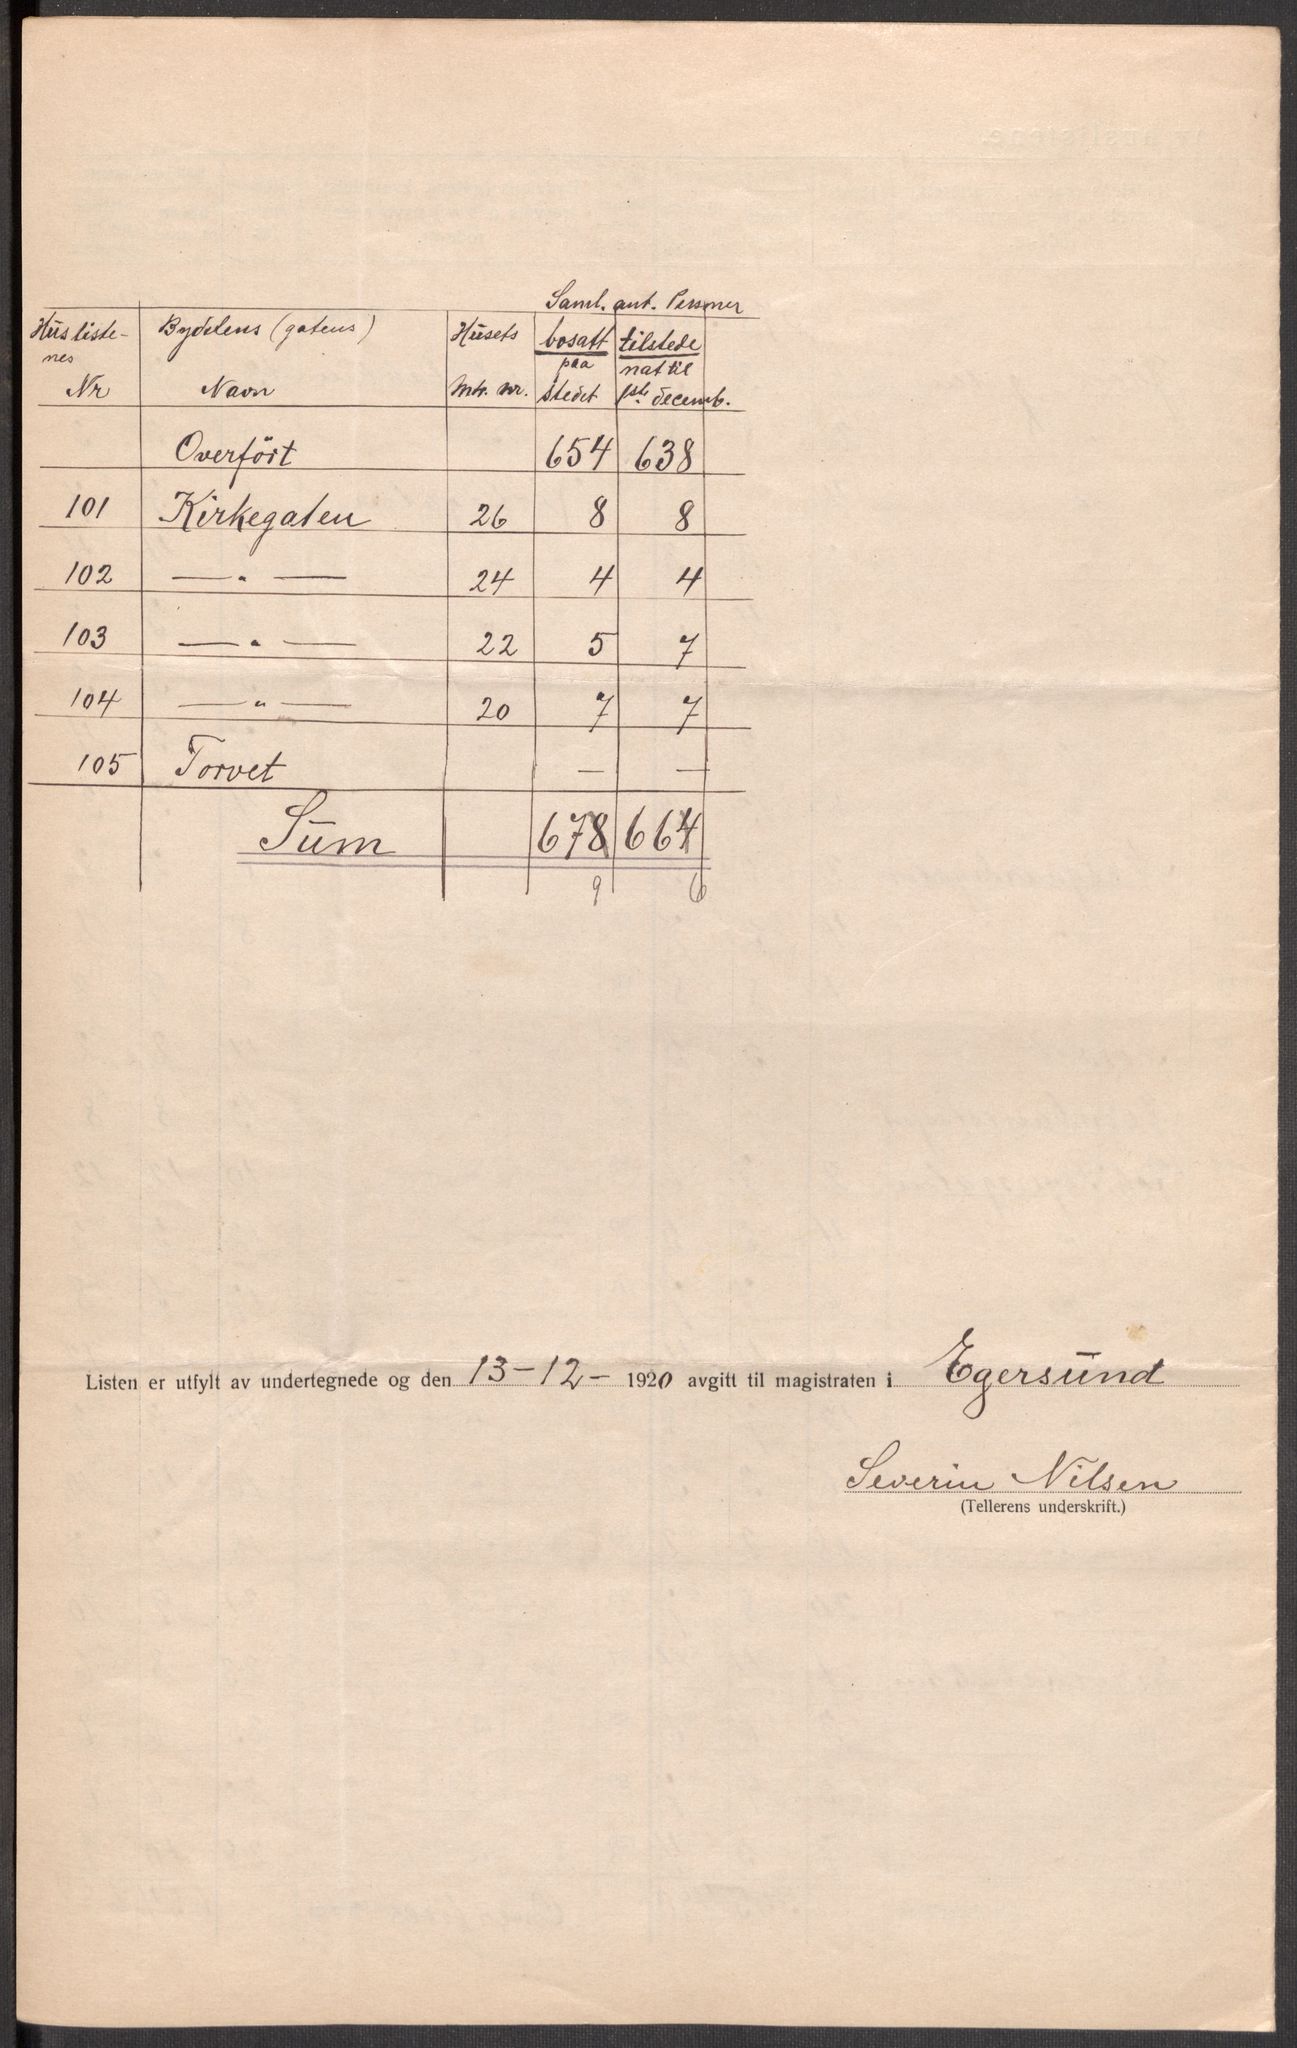 Saml. ant. Personer
Husliste- Bydelens (gatens) Husets bosatt tilstede
nes paa nat til
Nr Navn Mtr. nr. stedet 1ste decemb.
Overført 654 638
101 Kirkegaten 26 8 8
102 — " — 24 4 4
103 — " — 22 5 7
104 — " — 20 7 7
105 Torvet — —
Sum 678 664
9 6
Listen er utfylt av undertegnede og den 13-12- 1920 avgitt til magistraten i Egersund
Severin Nilsen
(Tellerens underskrift.)